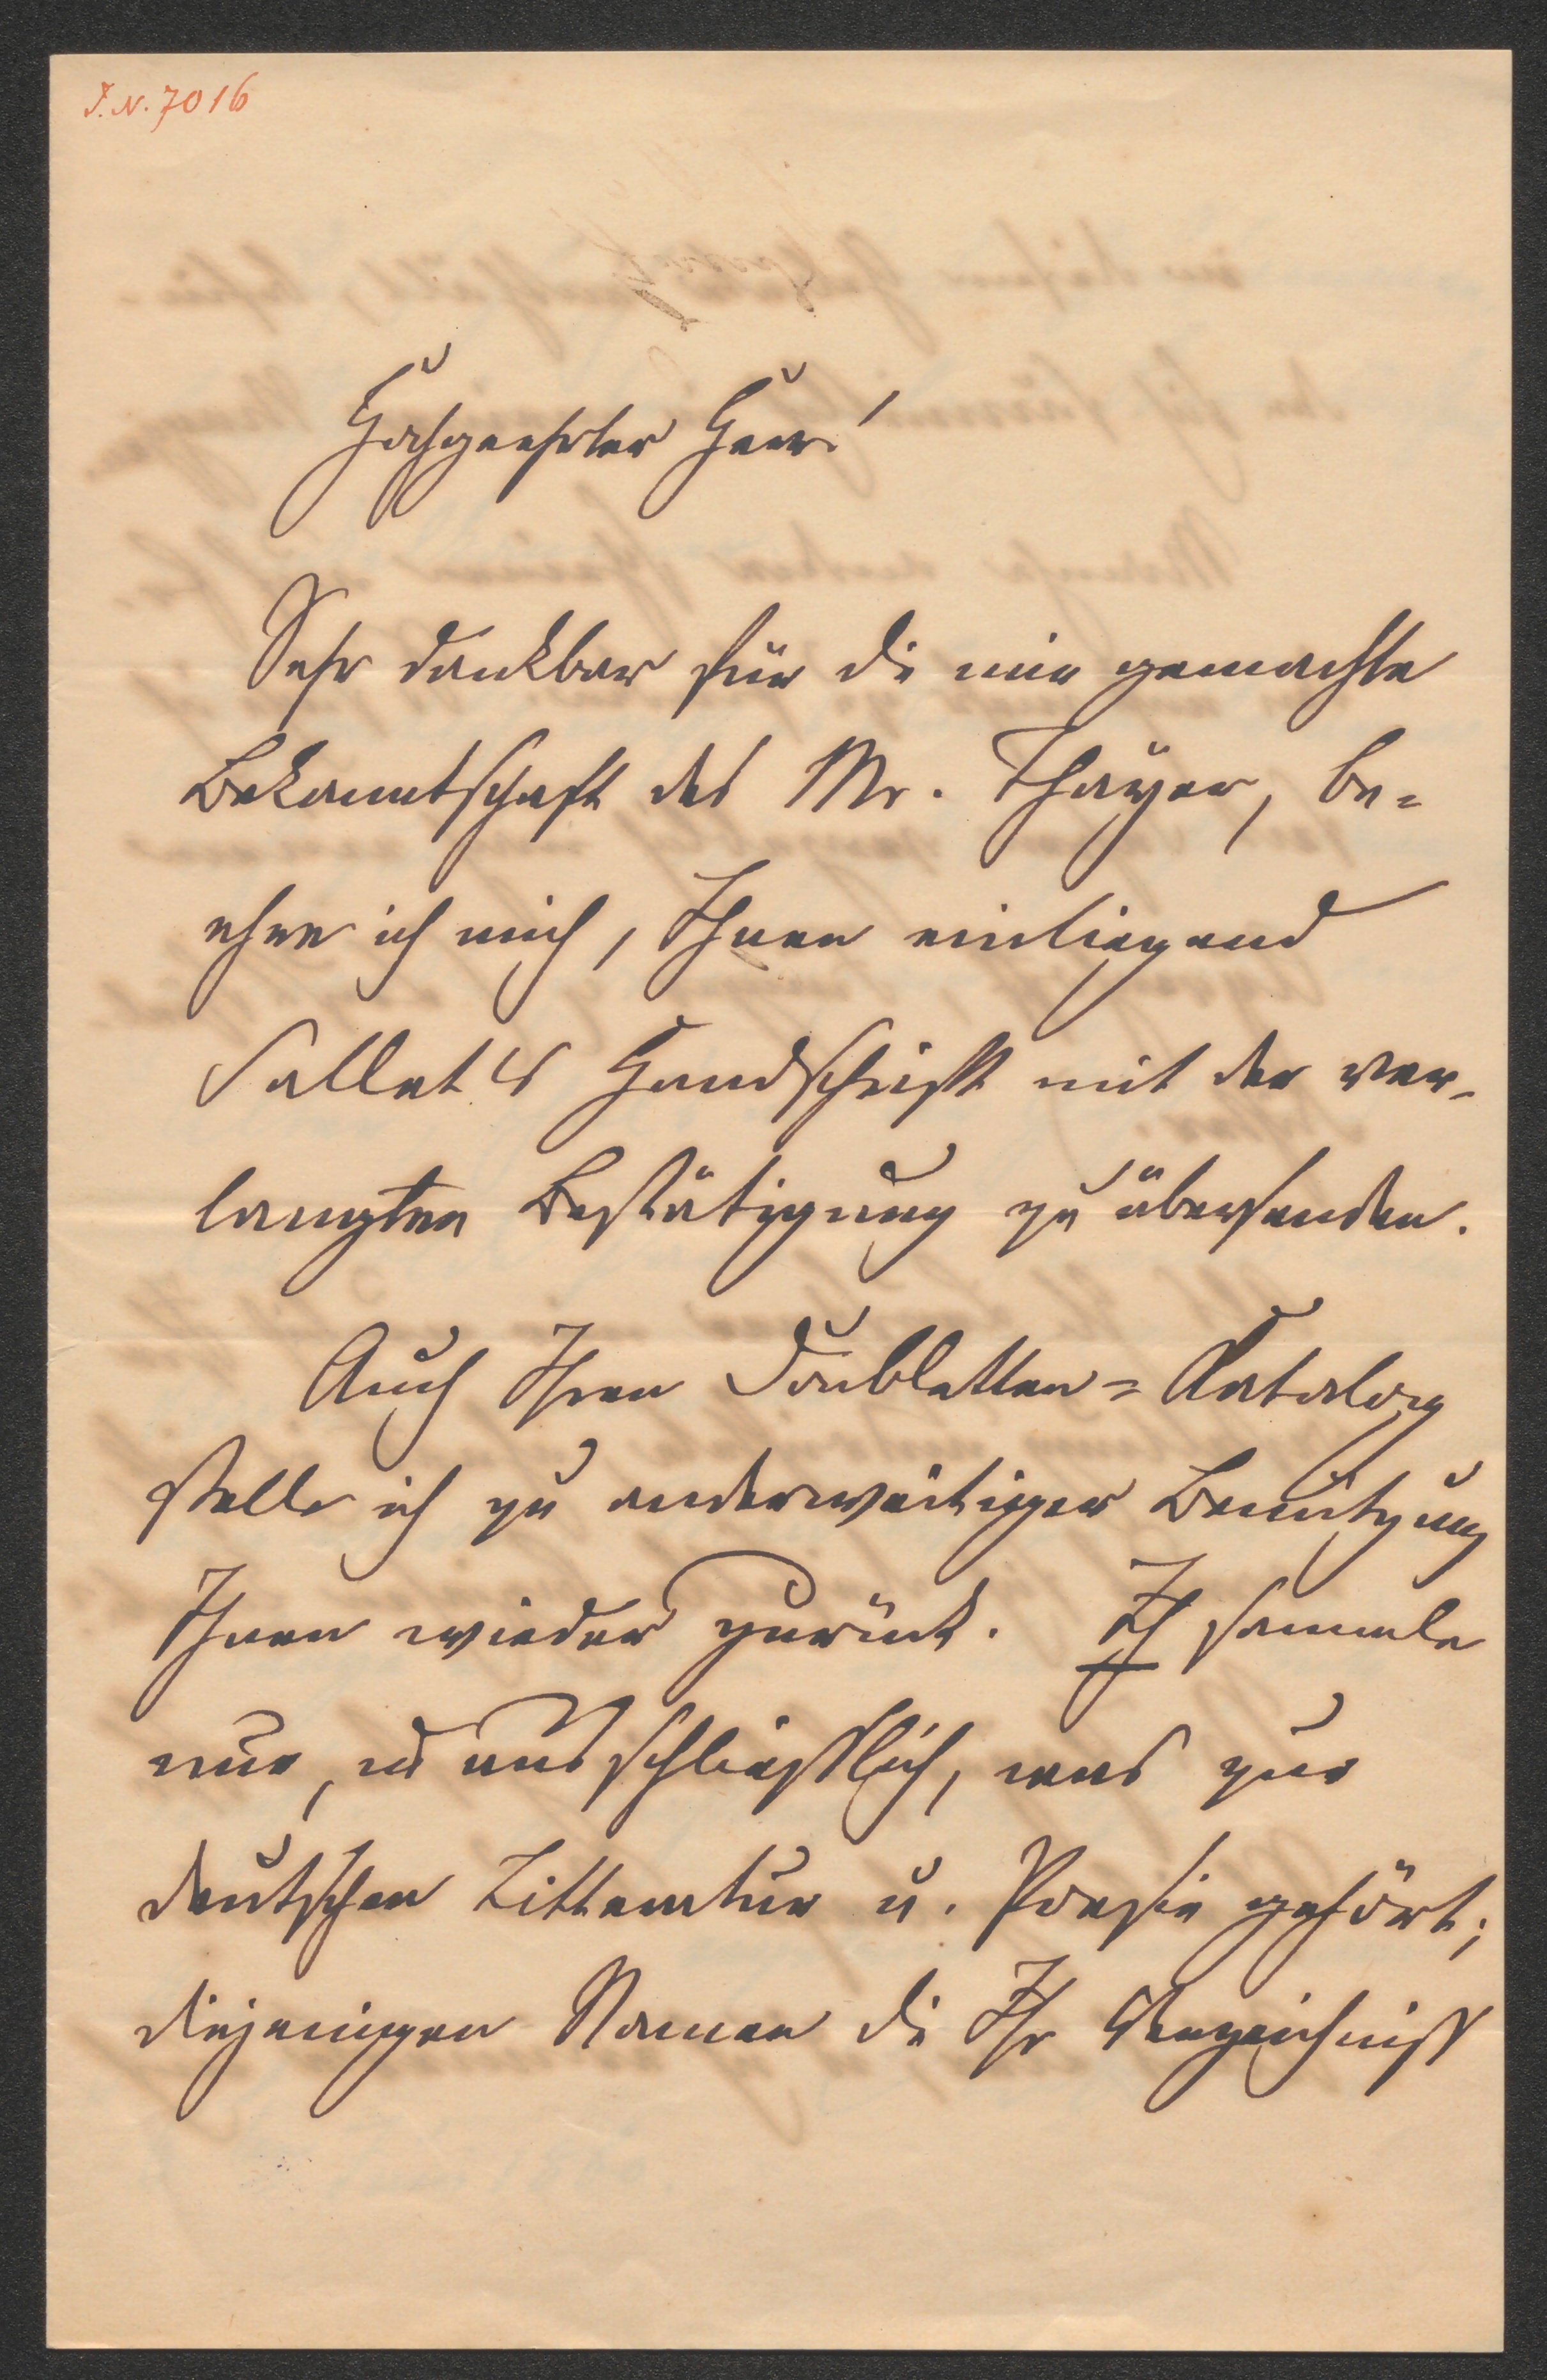 I.N. 7016
Hochgeehrter Herr!
Sehr dankbar für die mir gemachte
Bekanntschaft des Mr. Thayer, be=
ehre ich mich, Ihnen einliegend
Sallet's Handschrift mit der ver-
langten Bestätigung zu übersenden.
Auch Ihren Doubletten=Katalog
stelle ich zu anderweitiger Benützung
Ihnen wieder zurück. Ich sammle
nur, u ausschließlich, was zur
deutschen Litteratur u. Poesie gehört;
diejenigen Namen die Ihr Verzeichniss